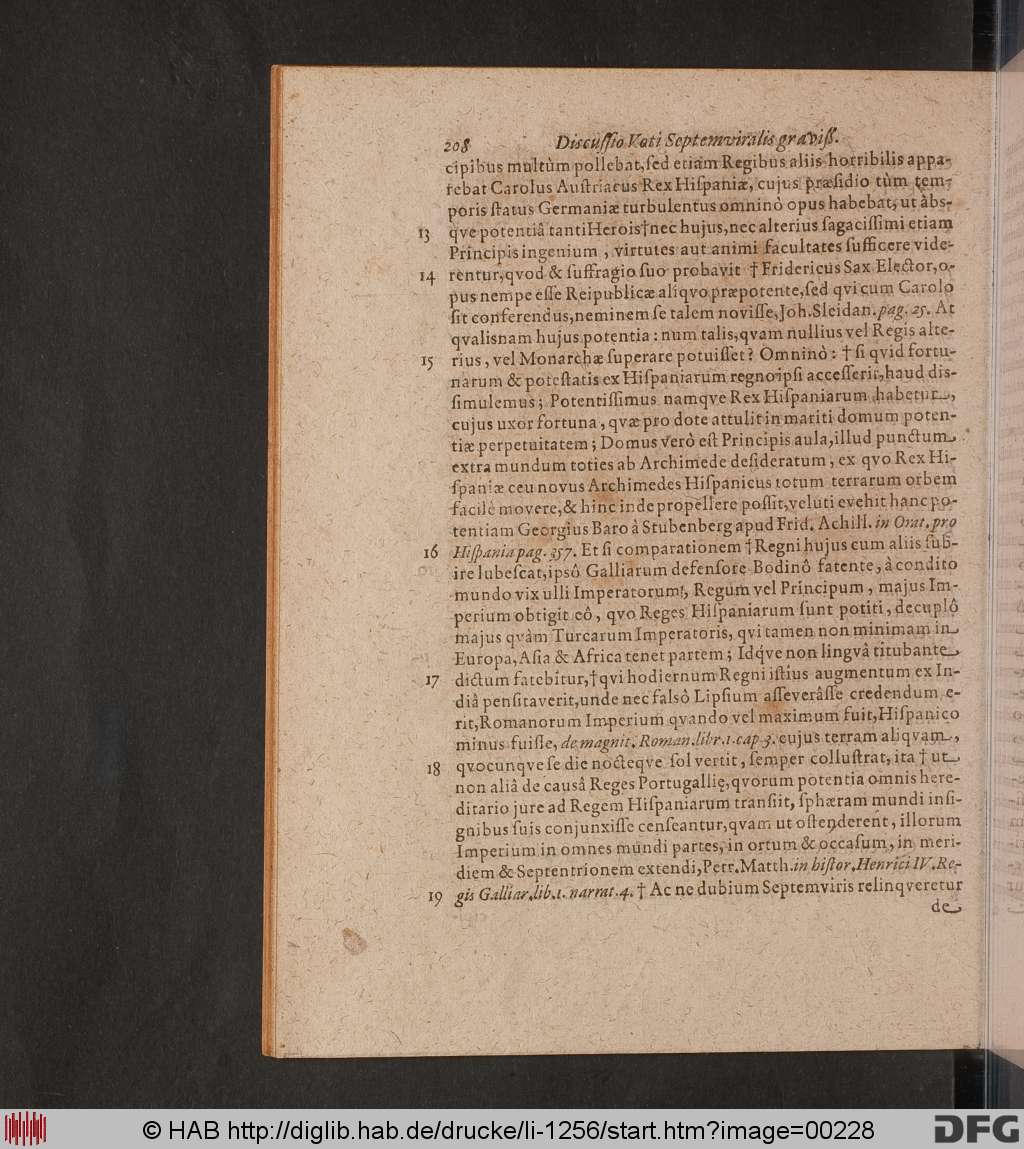 208 Discussio Voti Septemviralis graviss.
cipibus multùm pollebat, sed etiam Regibus aliis horribilis appa-
rebat Carolus Austriacus Rex Hispaniæ, cujus præsidio tùm tem-
poris status Germaniæ turbulentus omninò opus habebat, ut àbs-
13 qve potentiâ tanti Herois † nec hujus, nec alterius sagacissimi etiam
Principis ingenium, virtutes aut animi facultates sufficere vide-
14 rentur, qvod & suffragio suo probavit † Fridericus Sax Elector, o-
pus nempe esse Reipublicæ aliqvo præpotente, sed qvi cum Carolo
sit conferendus, neminem se talem novisse, Joh. Sleidan. pag. 25. At
qvalisnam hujus potentia: num talis, qvam nullius vel Regis alte-
15 rius, vel Monarchæ superare potuisset? Omninò: † si qvid fortu-
narum & potestatis ex Hispaniarum regno ipsi accesserit, haud dis-
simulemus; Potentissimus namqve Rex Hispaniarum habetur,
cujus uxor fortuna, qvæ pro dote attulit in mariti domum poten-
tiæ perpetuitatem; Domus verò est Principis aula, illud punctum
extra mundum toties ab Archimede desideratum, ex qvo Rex Hi-
spaniæ ceu novus Archimedes Hispanicus totum terrarum orbem
facilè movere, & hinc inde propellere possit, veluti evehit hanc po-
tentiam Georgius Baro à Stubenberg apud Frid. Achill. in Orat. pro
16 Hispania pag. 357. Et si comparationem † Regni hujus cum aliis sub-
ire lubescat, ipsô Galliarum defensore Bodinô fatente, à condito
mundo vix ulli Imperatorum, Regum vel Principum, majus Im-
perium obtigit eô, qvo Reges Hispaniarum sunt potiti, decuplô
majus qvàm Turcarum Imperatoris, qvi tamen non minimam in
Europa, Asia & Africa tenet partem; Idqve non lingvâ titubante
17 dictum fatebitur, † qvi hodiernum Regni istius augmentum ex In-
diâ pensitaverit, unde nec falsô Lipsium asseverâsse credendum e-
rit, Romanorum Imperium qvando vel maximum fuit, Hispanico
minus fuisse, de magnit. Roman. libr. 1. cap 3. cujus terram aliqvam,
18 qvocunqve se die nocteqve sol vertit, semper collustrat, ita † ut
non aliâ de causâ Reges Portugallię, qvorum potentia omnis here-
ditario jure ad Regem Hispaniarum transiit, sphæram mundi insi-
gnibus suis conjunxisse censeantur, qvam ut ostenderent, illorum
Imperium in omnes mundi partes, in ortum & occasum, in meri-
diem & Septentrionem extendi, Petr. Matth. in histor. Henrici IV. Re-
19 gis Galliar. lib. 1. narrat. 4. † Ac ne dubium Septemviris relinqveretur
de
© HAB http://diglib.hab.de/drucke/li-1256/start.htm?image=00228
DFG